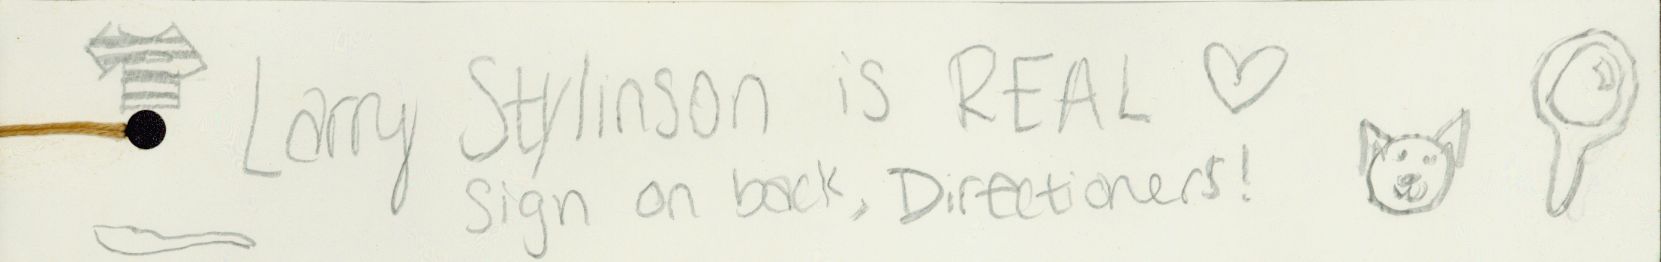 Larry Stylinson is REAL ♡
Sign on back, Directioners!